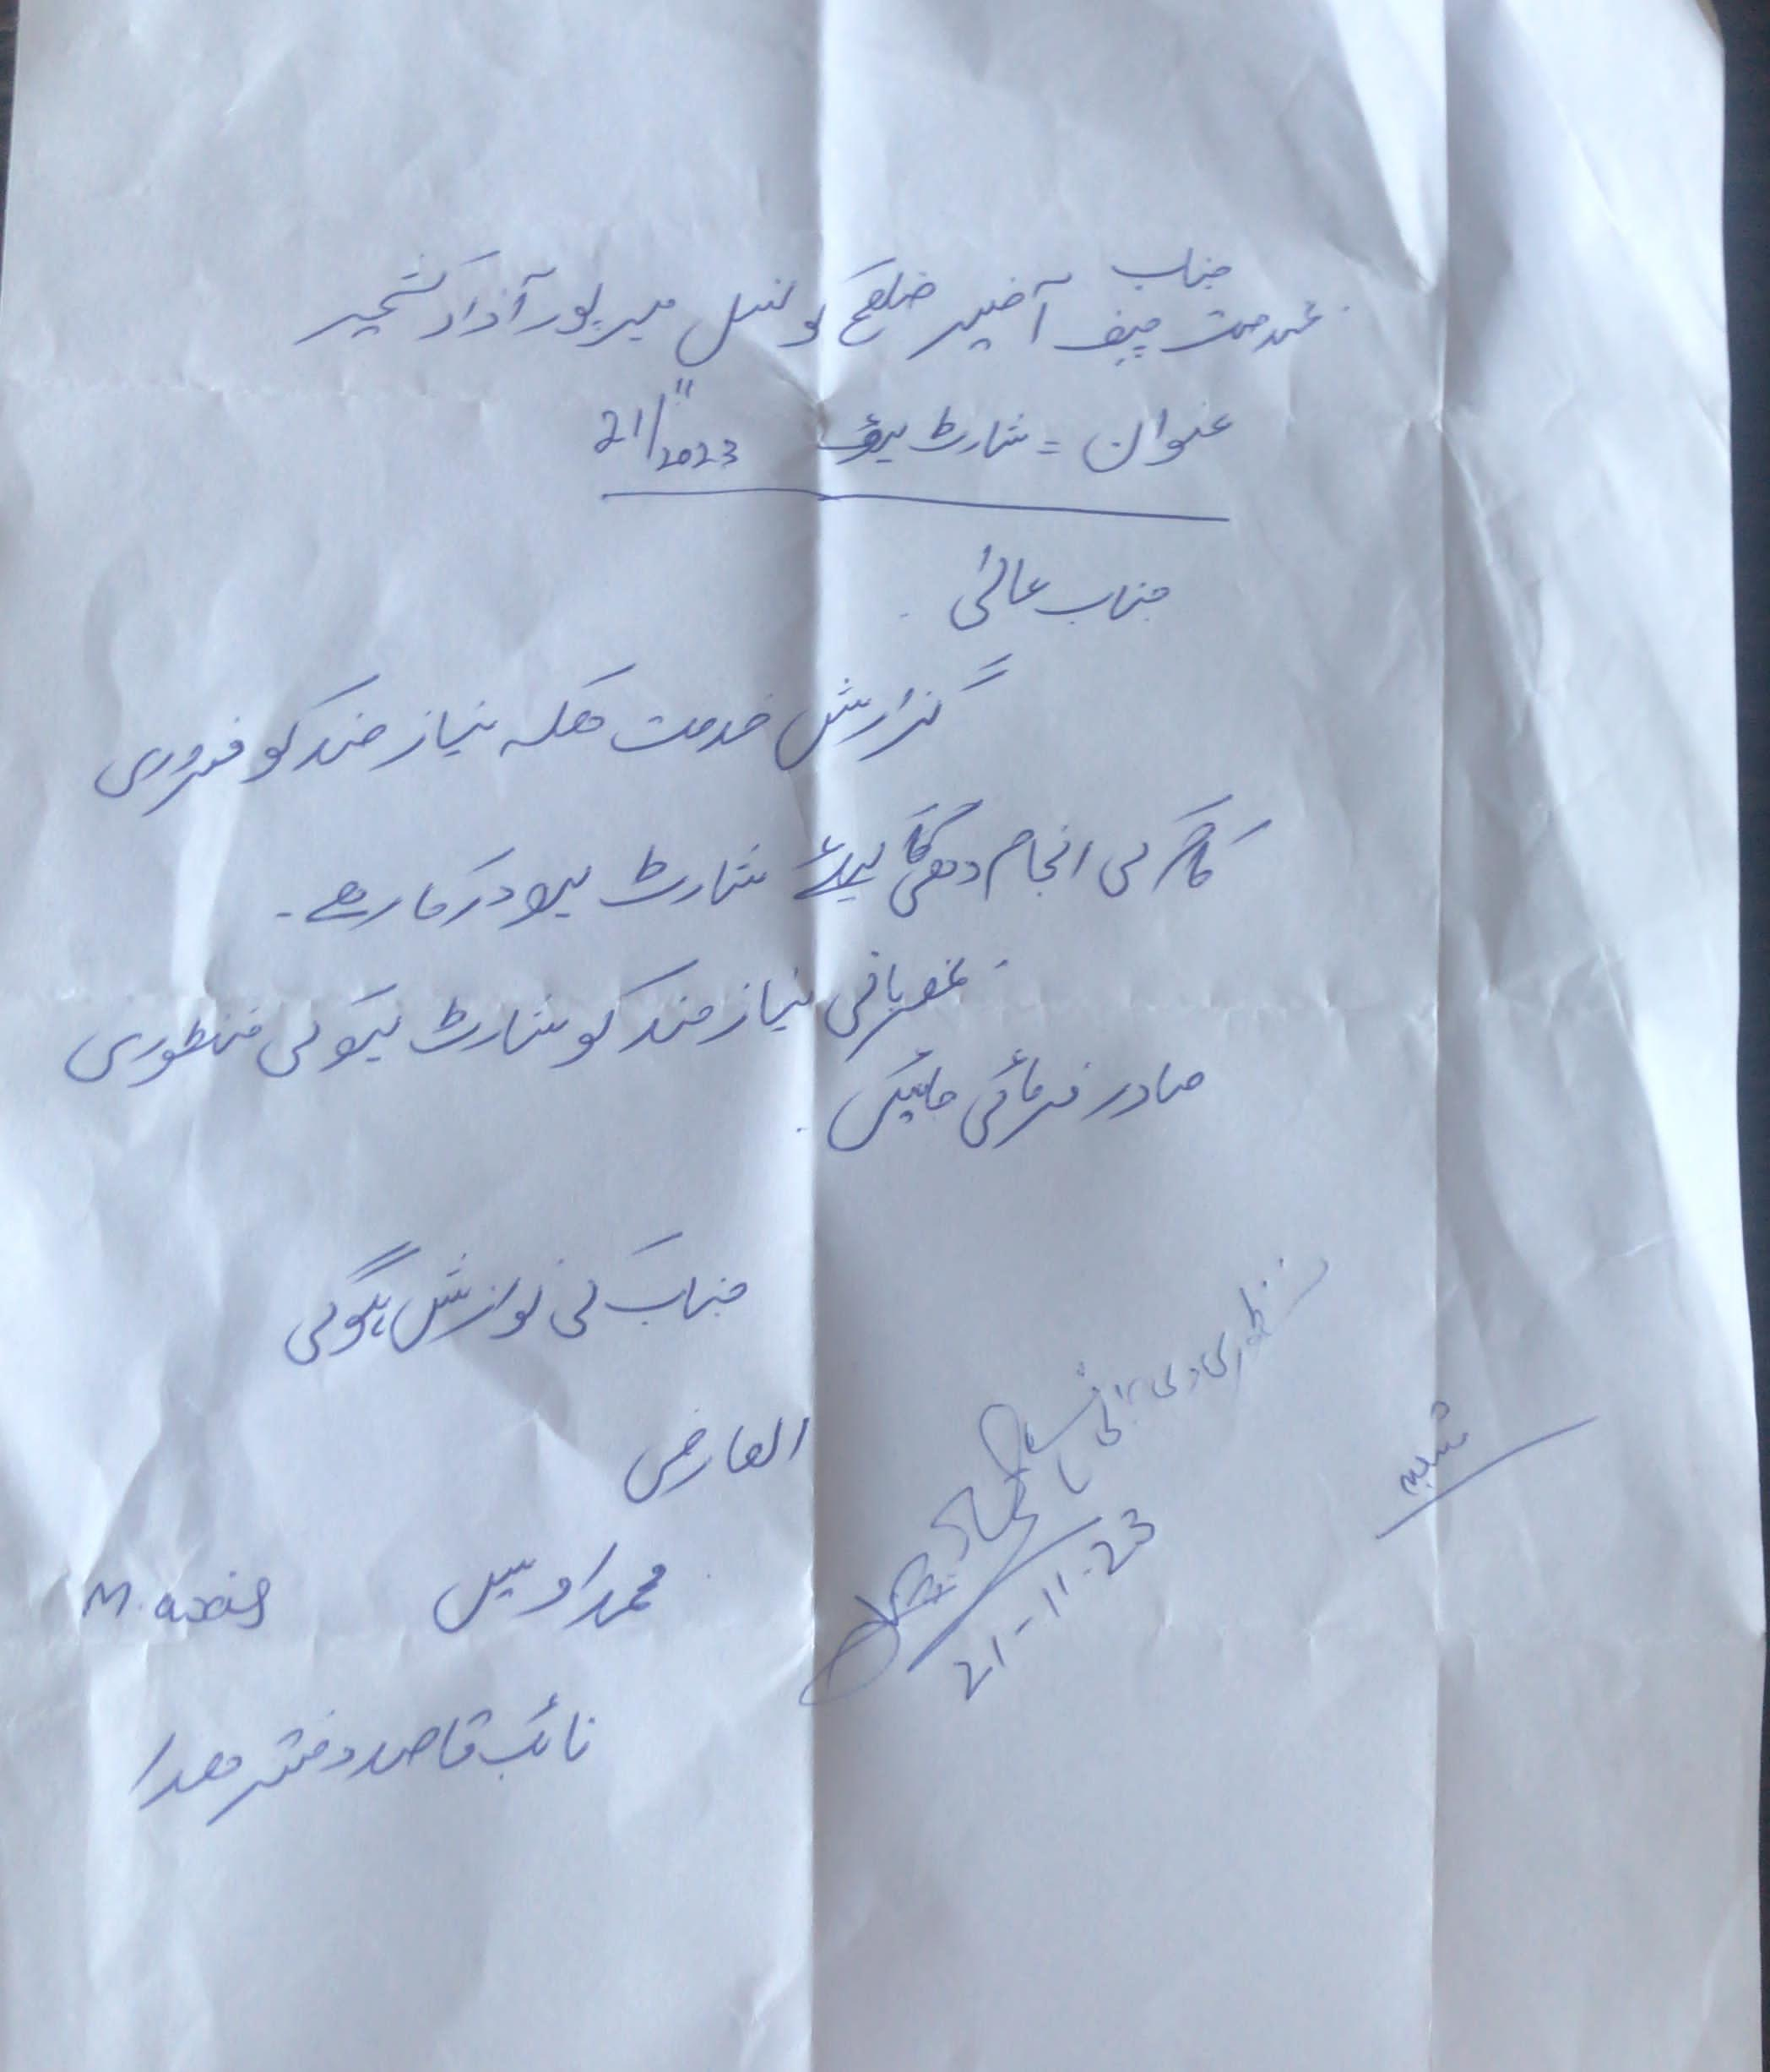 جناب
بخدمت چیف آفیسر ضلع کونسل میرپور آزاد کشمیر
عنوان = شارٹ لیو 21/11/2023
جناب عالیٰ
گزارش خدمت هیکہ نیاز مند کو ضروری
کام کی انجام دھی کا لیئے شارٹ لیو درکار ھے۔
بمہربانی نیاز مند کو شارٹ لیو کی منظوری
صادر فرمائی جائیں
جناب کی نوازش ہوگی
العارض
محمد اویس M. awais
نائب قاصد دفتر ھذا
منظوری دی جاتی
21-11-23